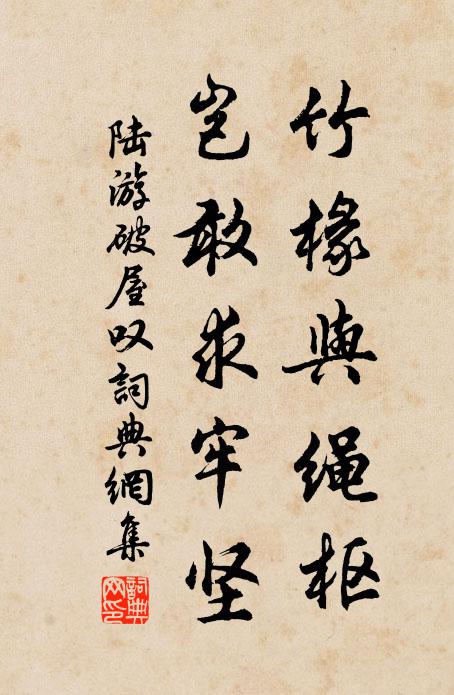 竹椽與绳枢
岂敢求牢坚
陆游破屋叹詞典網集
詞典网印